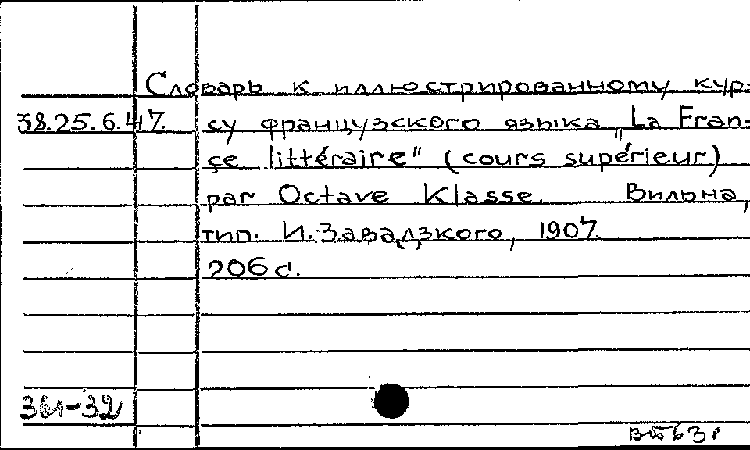 Словарь к иллюстрированному кур-
38.25.6.47. су французского языка „La Fran-
çe littéraire" (cours supérieur)
par Octave Klasse. Вильна,
тип. И. Завадзкого, 1907.
206 с.